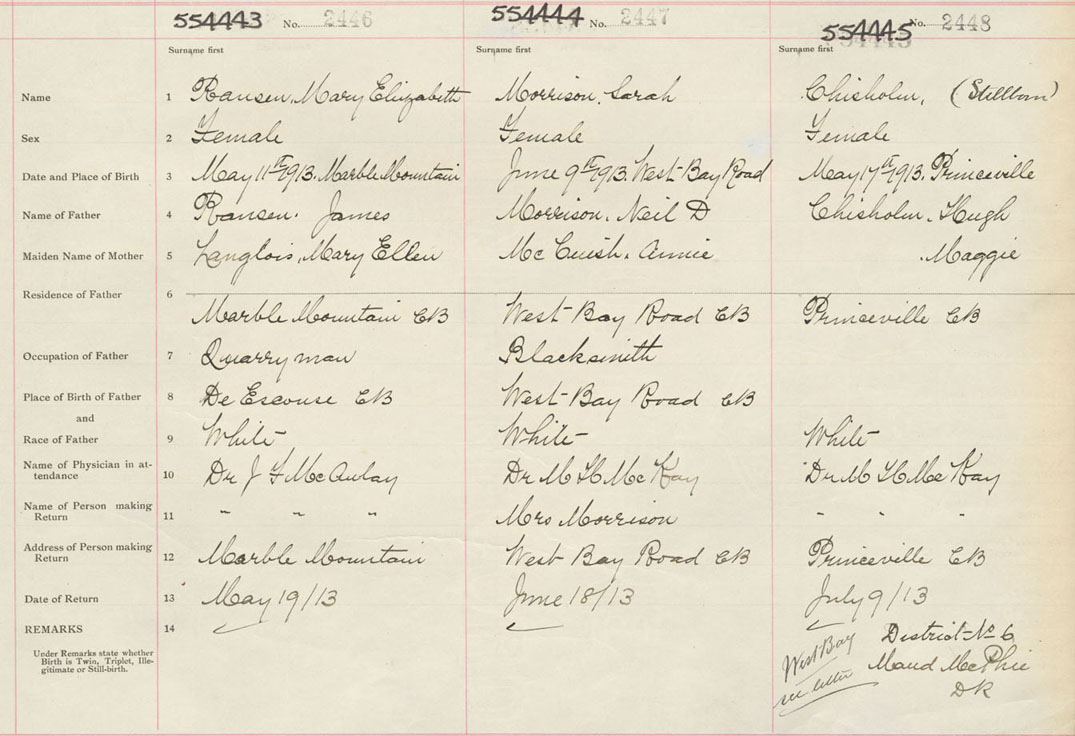 554443 No. 2446 554444 No. 2447 554445 No. 2448
Surname first Surname first Surname first
Name 1 Ransen, Mary Elizabeth Morrison, Sarah Chisholm, (Stillborn)
Sex 2 Female Female Female
Date and Place of Birth 3 May 11th 1913. Marble Mountain June 9th 1913. West Bay Road May 17th 1913. Princeville
Name of Father 4 Ransen. James Morrison. Neil D Chisholm. Hugh
Maiden Name of Mother 5 Langlois, Mary Ellen Mc Cuish. Annie . Maggie
Residence of Father 6
Marble Mountain CB West Bay Road CB Princeville CB
Occupation of Father 7 Quarryman Blacksmith
Place of Birth of Father 8 De Escouse CB West Bay Road CB
and
Race of Father 9 White White White
Name of Physician in at-
tendance 10 Dr J McAulay Dr M H McKay Dr M H McKay
Name of Person making
Return 11 " " " Mrs Morrison " " "
Address of Person making
Return 12 Marble Mountain West Bay Road CB Princeville CB
Date of Return 13 May 19/13 June 18/13 July 9/13
REMARKS 14
Under Remarks state whether
Birth is Twin, Triplet, Ille-
gitimate or Still-birth.
West Bay
see letter
District No 6
Maud McPhie
DR